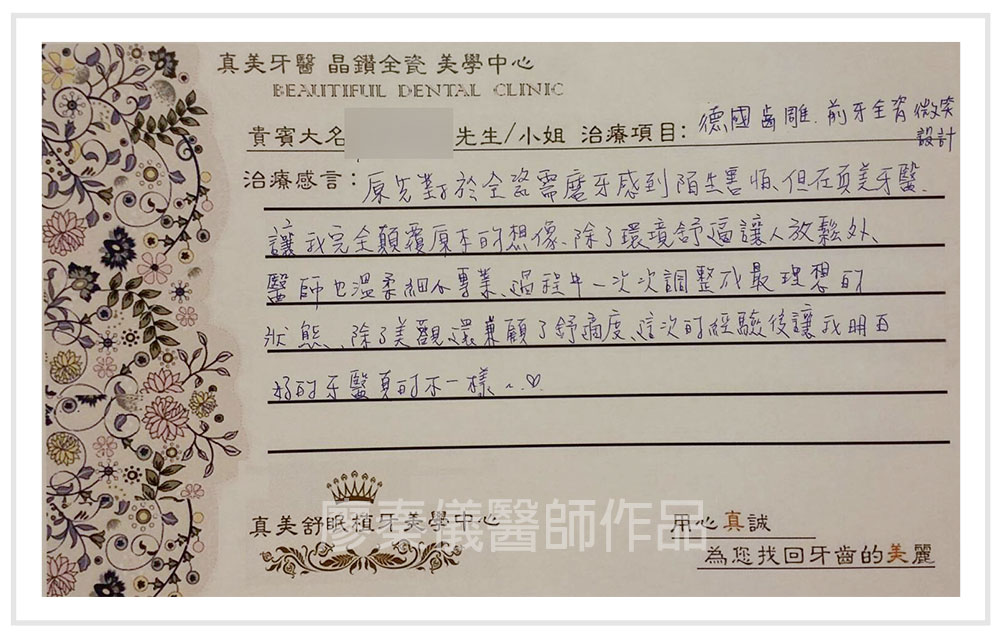 真美牙醫 晶鑽全瓷 美學中心
BEAUTIFUL DENTAL CLINIC
貴賓大名 先生/小姐 治療項目: 德國齒雕.前牙全瓷微笑
設計
治療感言: 原先對於全瓷需磨牙感到陌生害怕、但在真美牙醫、
讓我完全顛覆原本的想像、除了環境舒適讓人放鬆外、
醫師也溫柔細心專業、過程中一次次調整成最理想的
狀態、除了美觀、還兼顧了舒適度、這次的經驗後讓我明白
好的牙醫真的不一樣~♡
真美舒眠植牙美學中心
廖泰儀醫師作品
用心真誠
為您找回牙齒的美麗